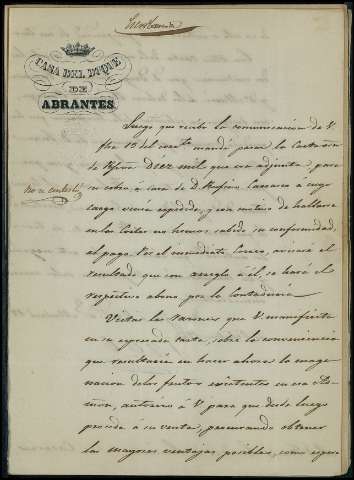 CASA DEL DUQUE
DE
ABRANTES.
Luego que recibí la comunicacion de V.
fha 15 del corrte mandé pasar la Carta orn
de Rsvon Diez mil que era adjunta para
su cobro, á casa de D. Rufino Carrasco á cuyo
cargo venía espedida, y con motivo de hallarse
en las Cortes no hemos sabido su conformidad
al pago. Por el inmediato Correo, avisaré el
resultado que con arreglo á él, se hará el
respectivo abono por la Contaduría.
No se contestó
Vistas las razones que V. manifiesta
en su espresada carta, sobre la conveniencia
que resultaría en hacer ahora la enage-
nacion de los frutos existentes en esa Ad-
mon, autorizo á V. para que desde luego
proceda á su venta, procurando obtener
las mayores ventajas posibles, como espero